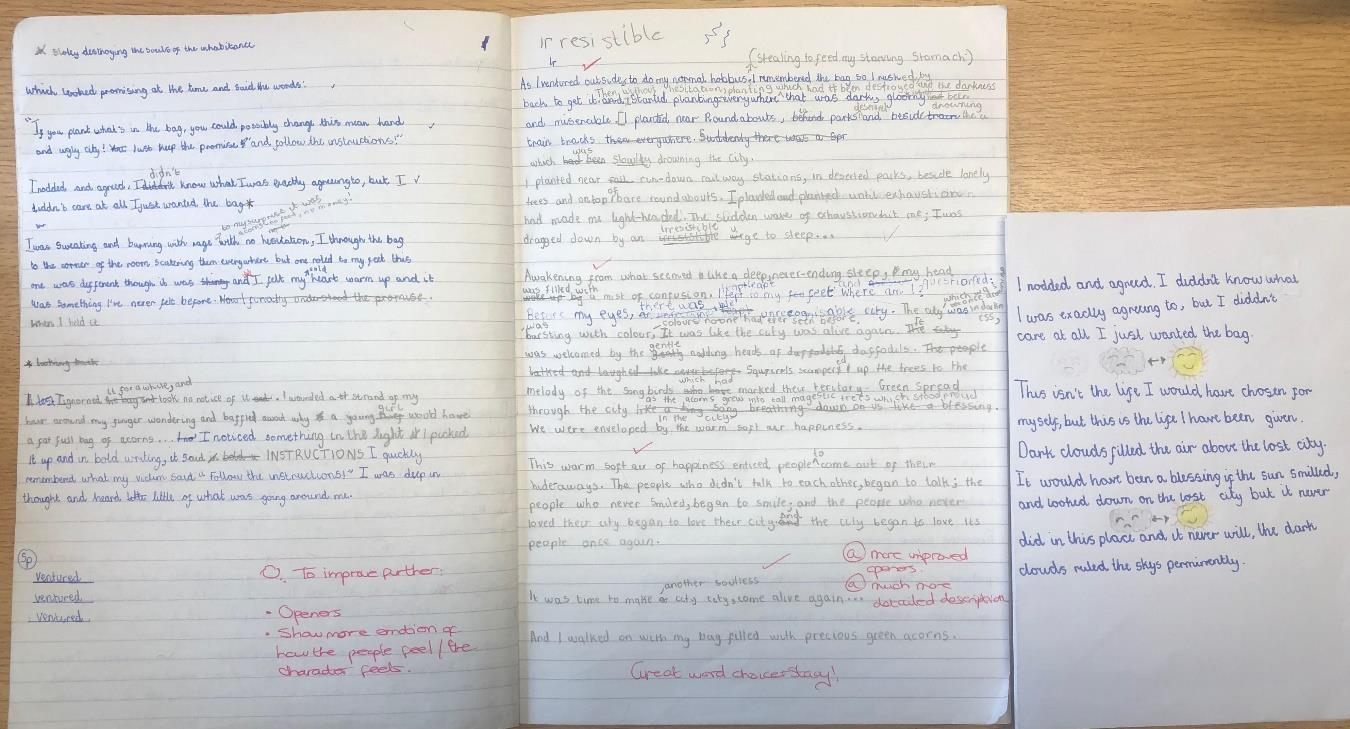 * Slowly destroying the souls of the inhabitance
which looked promising at the time and said the words:
"If you plant what's in the bag, you could possibly change this mean hard
and ugly city! Just keep the promise and follow the instructions!"
I nodded and agreed. I didn't know what I was exactly agreeing to, but I
diddn't care at all I just wanted the bag*
to my surprise it was
acorns no food, no money!
I was sweating and burning with rage with no hesitation, I through the bag
to the corner of the room scatering them everywhere but one roled to my feet this
one was different though it was shiney and I felt my cold heart warm up and it
was something I've never felt before. Now I finally understood the promise.
when I held it
* looking back
it for a while, and
I ignored look no notice of it. I wounded a strand of my
hair around my finger wondering and baffled about why a young girl would have
a fat full bag of acorns... I noticed something in the light I picked
it up and in bold writing, it said INSTRUCTIONS I quickly
remembered what my victim said "Follow the instructions!" I was deep in
thought and heard little of what was going around me.
Sp
Ventured
Ventured
Ventured
To improve further:
• Openers
• Show more emotion of
how the people feel / the
charactor feels.
1
Irresistible
Ir
(Stealing to feed my starving stomach.)
As I ventured outside, to do my normal hobbies, I remembered the bag so I rushed
back to get it. Then, without hesitation, planting which had been destroyed by the darkness
and, I started planting everywhere that was dark, gloomy
and miserable. I planted near Roundabouts, behind parks and beside train
train tracks then everywhere. Suddenly there was a
which was had been Slowlly drowning the city.
I planted near run-down railway stations, in deserted parks, beside lonely
trees and on top of bare roundabouts. I planted and planted until exhaustion
had made me light-headed. The sudden wave of exhaustion hit me; I was
dragged down by an irresistible urge to sleep...
Awakening from what seemed like a deep, never-ending sleep, my head
was filled with a mist of confusion. I leapt to my feet and questioned: where am I?
Before my eyes, there was unrecognisable city. The city which was once drowned in darkness,
was bursting with colour, colours no one had ever seen before. It was like the city was alive again. It
was welcomed by the gentle nodding heads of daffodils. The people
talked and laughed like never before. Squirrels scampered up the trees to the
melody of the song birds which had marked their teritary. Green Spread
through the city as the acorns grew into tall magestic trees which stood proud
in the city like a song breathing down on us like a blessing.
We were enveloped by the warm soft air happiness.
This warm soft air of happiness enticed people to come out of their
hideaways. The people who didn't talk to each other, began to talk; the
people who never smiled, began to smile; and the people who never
loved their city began to love their city. And the city began to love its
people once again.
@ more improved
openers.
@ much more
detailed description
It was time to make another soulless city, come alive again...
And I walked on with my bag filled with precious green acorns.
Great word choices Stacy!
I nodded and agreed. I diddn't know what
I was exactly agreeing to, but I diddn't
care at all I just wanted the bag.
This isn't the life I would have chosen for
myself, but this is the life I have been given.
Dark clouds filled the air above the lost city.
It would have been a blessing if the sun smiled,
and looked down on the lost city but it never
did in this place and it never will, the dark
clouds ruled the skys perminently.